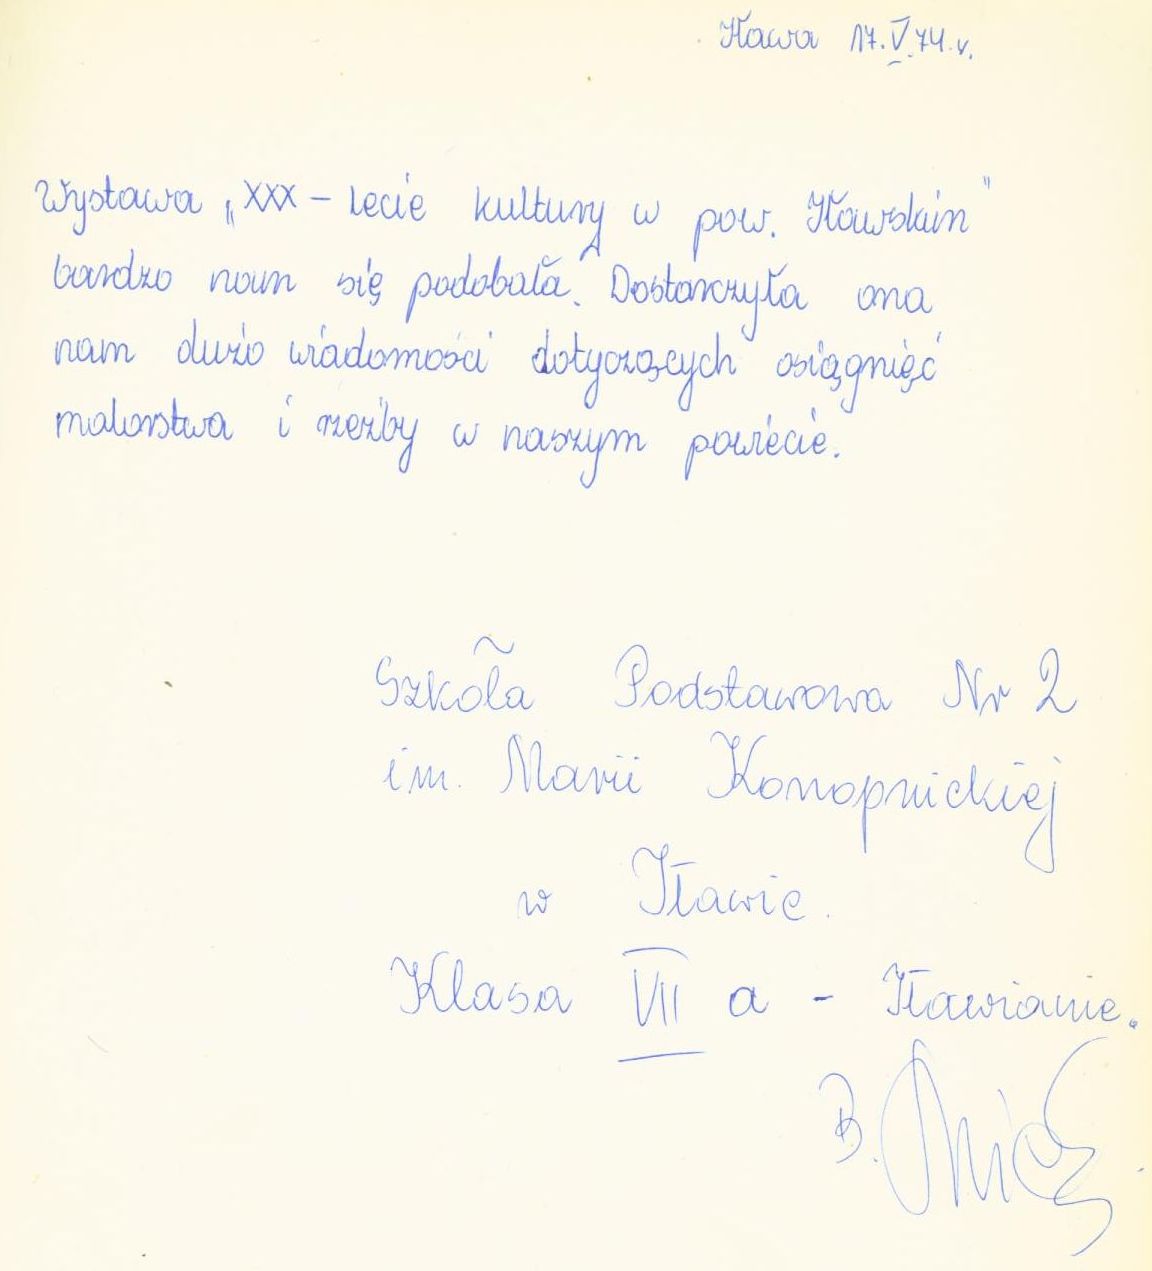 Iława 17.V.74.r.
Wystawa „XXX – lecie kultury w pow. Iławskim"
bardzo nam się podobała. Dostarczyła ona
nam dużo wiadomości dotyczących osiągnięć
malarstwa i rzeźby w naszym powiecie.
Szkoła Podstawowa Nr 2
im. Marii Konopnickiej
w Iławie.
Klasa VII a – Iławianie.
B.